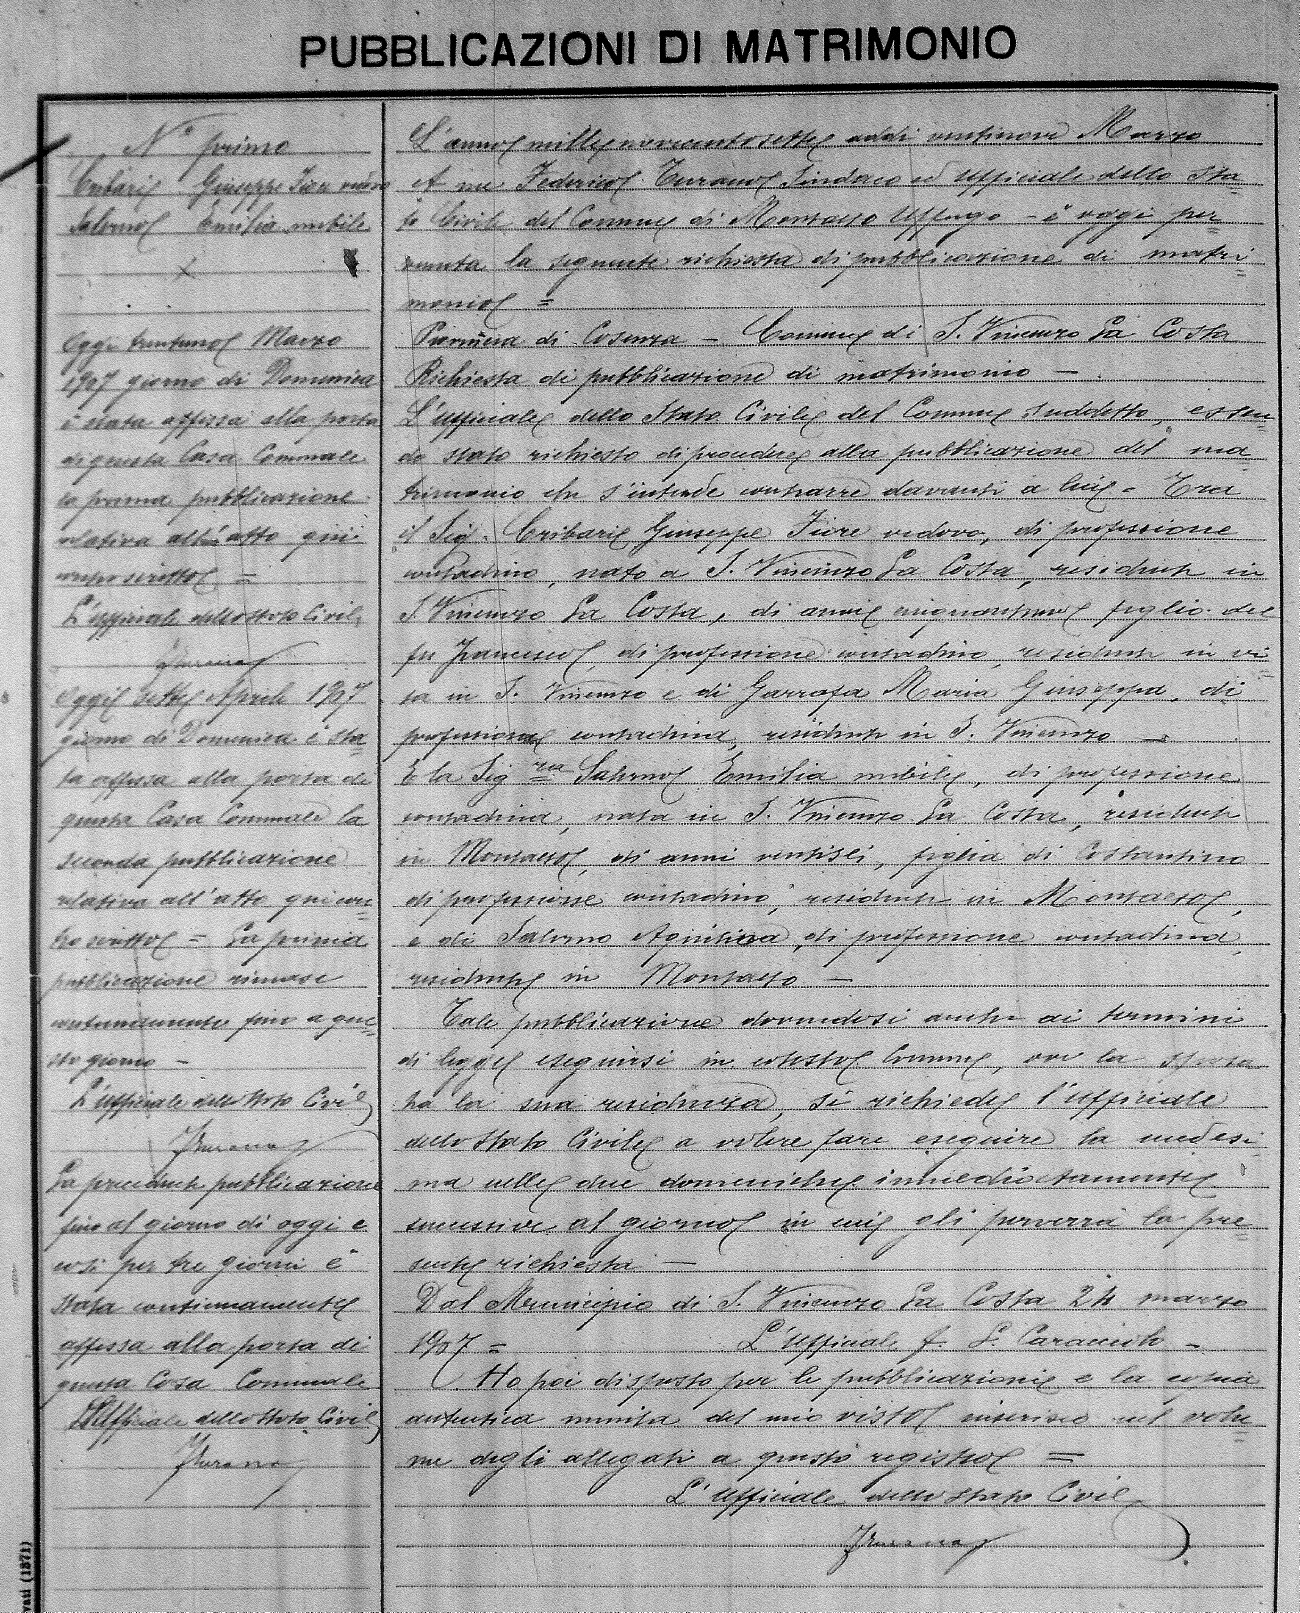 PUBBLICAZIONI DI MATRIMONIO
N° primo
Cribari Giuseppe Fiore vedovo
Salerno Emilia nubile
Oggi trentuno Marzo
1907 giorno di Domenica
è stata affissa alla porta
di questa Casa Comunale
la prima pubblicazione
relativa all'atto qui
contro scritto =
L'ufficiale dello Stato Civile
Turano
Oggi sette Aprile 1907
giorno di Domenica è sta
ta affissa alla porta di
questa Casa Comunale la
seconda pubblicazione
relativa all'atto qui con
tro scritto = La prima
pubblicazione rimase
continuamente fino a que
sto giorno –
L'ufficiale dello Stato Civile
Turano
La precedente pubblicazione
fino al giorno di oggi e
così per tre giorni è
stata continuamente
affissa alla porta di
questa Casa Comunale
L'Ufficiale dello Stato Civile
Turano
L'anno millenovecentosette addì ventinove Marzo
A me Federico Turano Sindaco ed ufficiale dello Sta
to Civile del Comune di Montalto Uffugo – è oggi per
venuta la seguente richiesta di pubblicazione di matri
monio =
Provincia di Cosenza – Comune di S. Vincenzo La Costa
Richiesta di pubblicazione di matrimonio –
L'ufficiale dello Stato Civile del Comune suddetto, essen
do stato richiesto di procedere alla pubblicazione del ma
trimonio che s'intende contrarre davanti a lui = Tra
il Sig. Cribari Giuseppe Fiore vedovo, di professione
contadino, nato a S. Vincenzo La Costa, residente in
S. Vincenzo La Costa, di anni cinquantuno figlio del
fu Francesco, di professione contadino, residente in vi
ta in S. Vincenzo e di Garrafa Maria Giuseppa, di
professione contadina, residente in S. Vincenzo –
E la Sig.ra Salerno Emilia nubile, di professione
contadina, nata in S. Vincenzo La Costa, residente
in Montalto, di anni ventisei, figlia di Costantino
di professione contadino, residente in Montalto,
e di Salerno Agustina, di professione contadina,
residente in Montalto –
Tale pubblicazione dovendosi anche ai termini
di legge eseguirsi in cotesto Comune, ove la sposa
ha la sua residenza, si richiede l'ufficiale
dello Stato Civile a volere fare eseguire la medesi
ma nelle due domeniche immediatamente
successive al giorno in cui gli perverrà la pre
sente richiesta –
Dal Municipio di S. Vincenzo La Costa 24 marzo
1907 = L'ufficiale f. L. Caracciolo –
Ho poi disposto per le pubblicazioni e la copia
autentica munita del mio visto inserisco nel volu
me degli allegati a questo registro =
L'ufficiale dello Stato Civile
Turano
vati (1871)